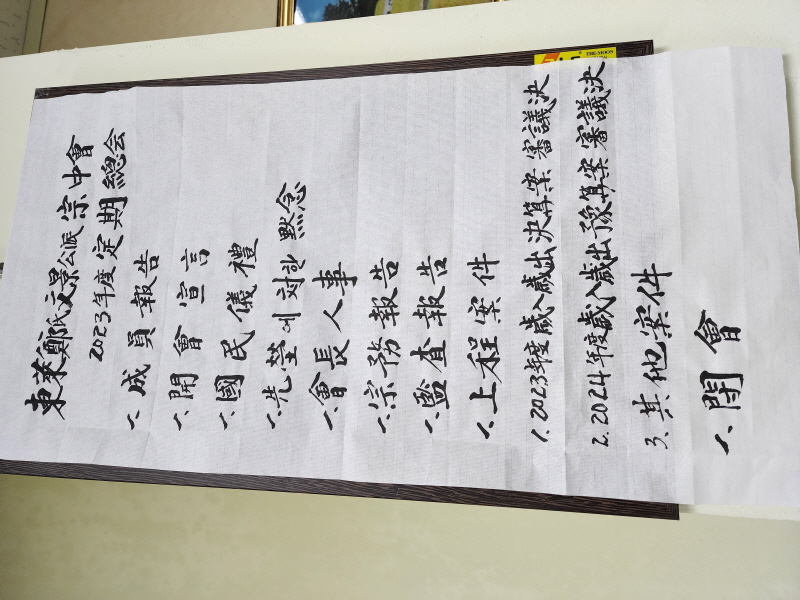 東萊鄭氏文景公派 宗中會
2023年度 定期 總会
1. 成員報告
1. 開會宣言
1. 國民儀禮
1. 先塋에 対한 默念
1. 會長人事
1. 宗務報告
1. 監査報告
1. 上程案件
1. 2023年度歲入歲出決算案審議決
2. 2024年度歲入歲出予豫算案審議決
3. 其他案件
1. 閉會
THE-MOON